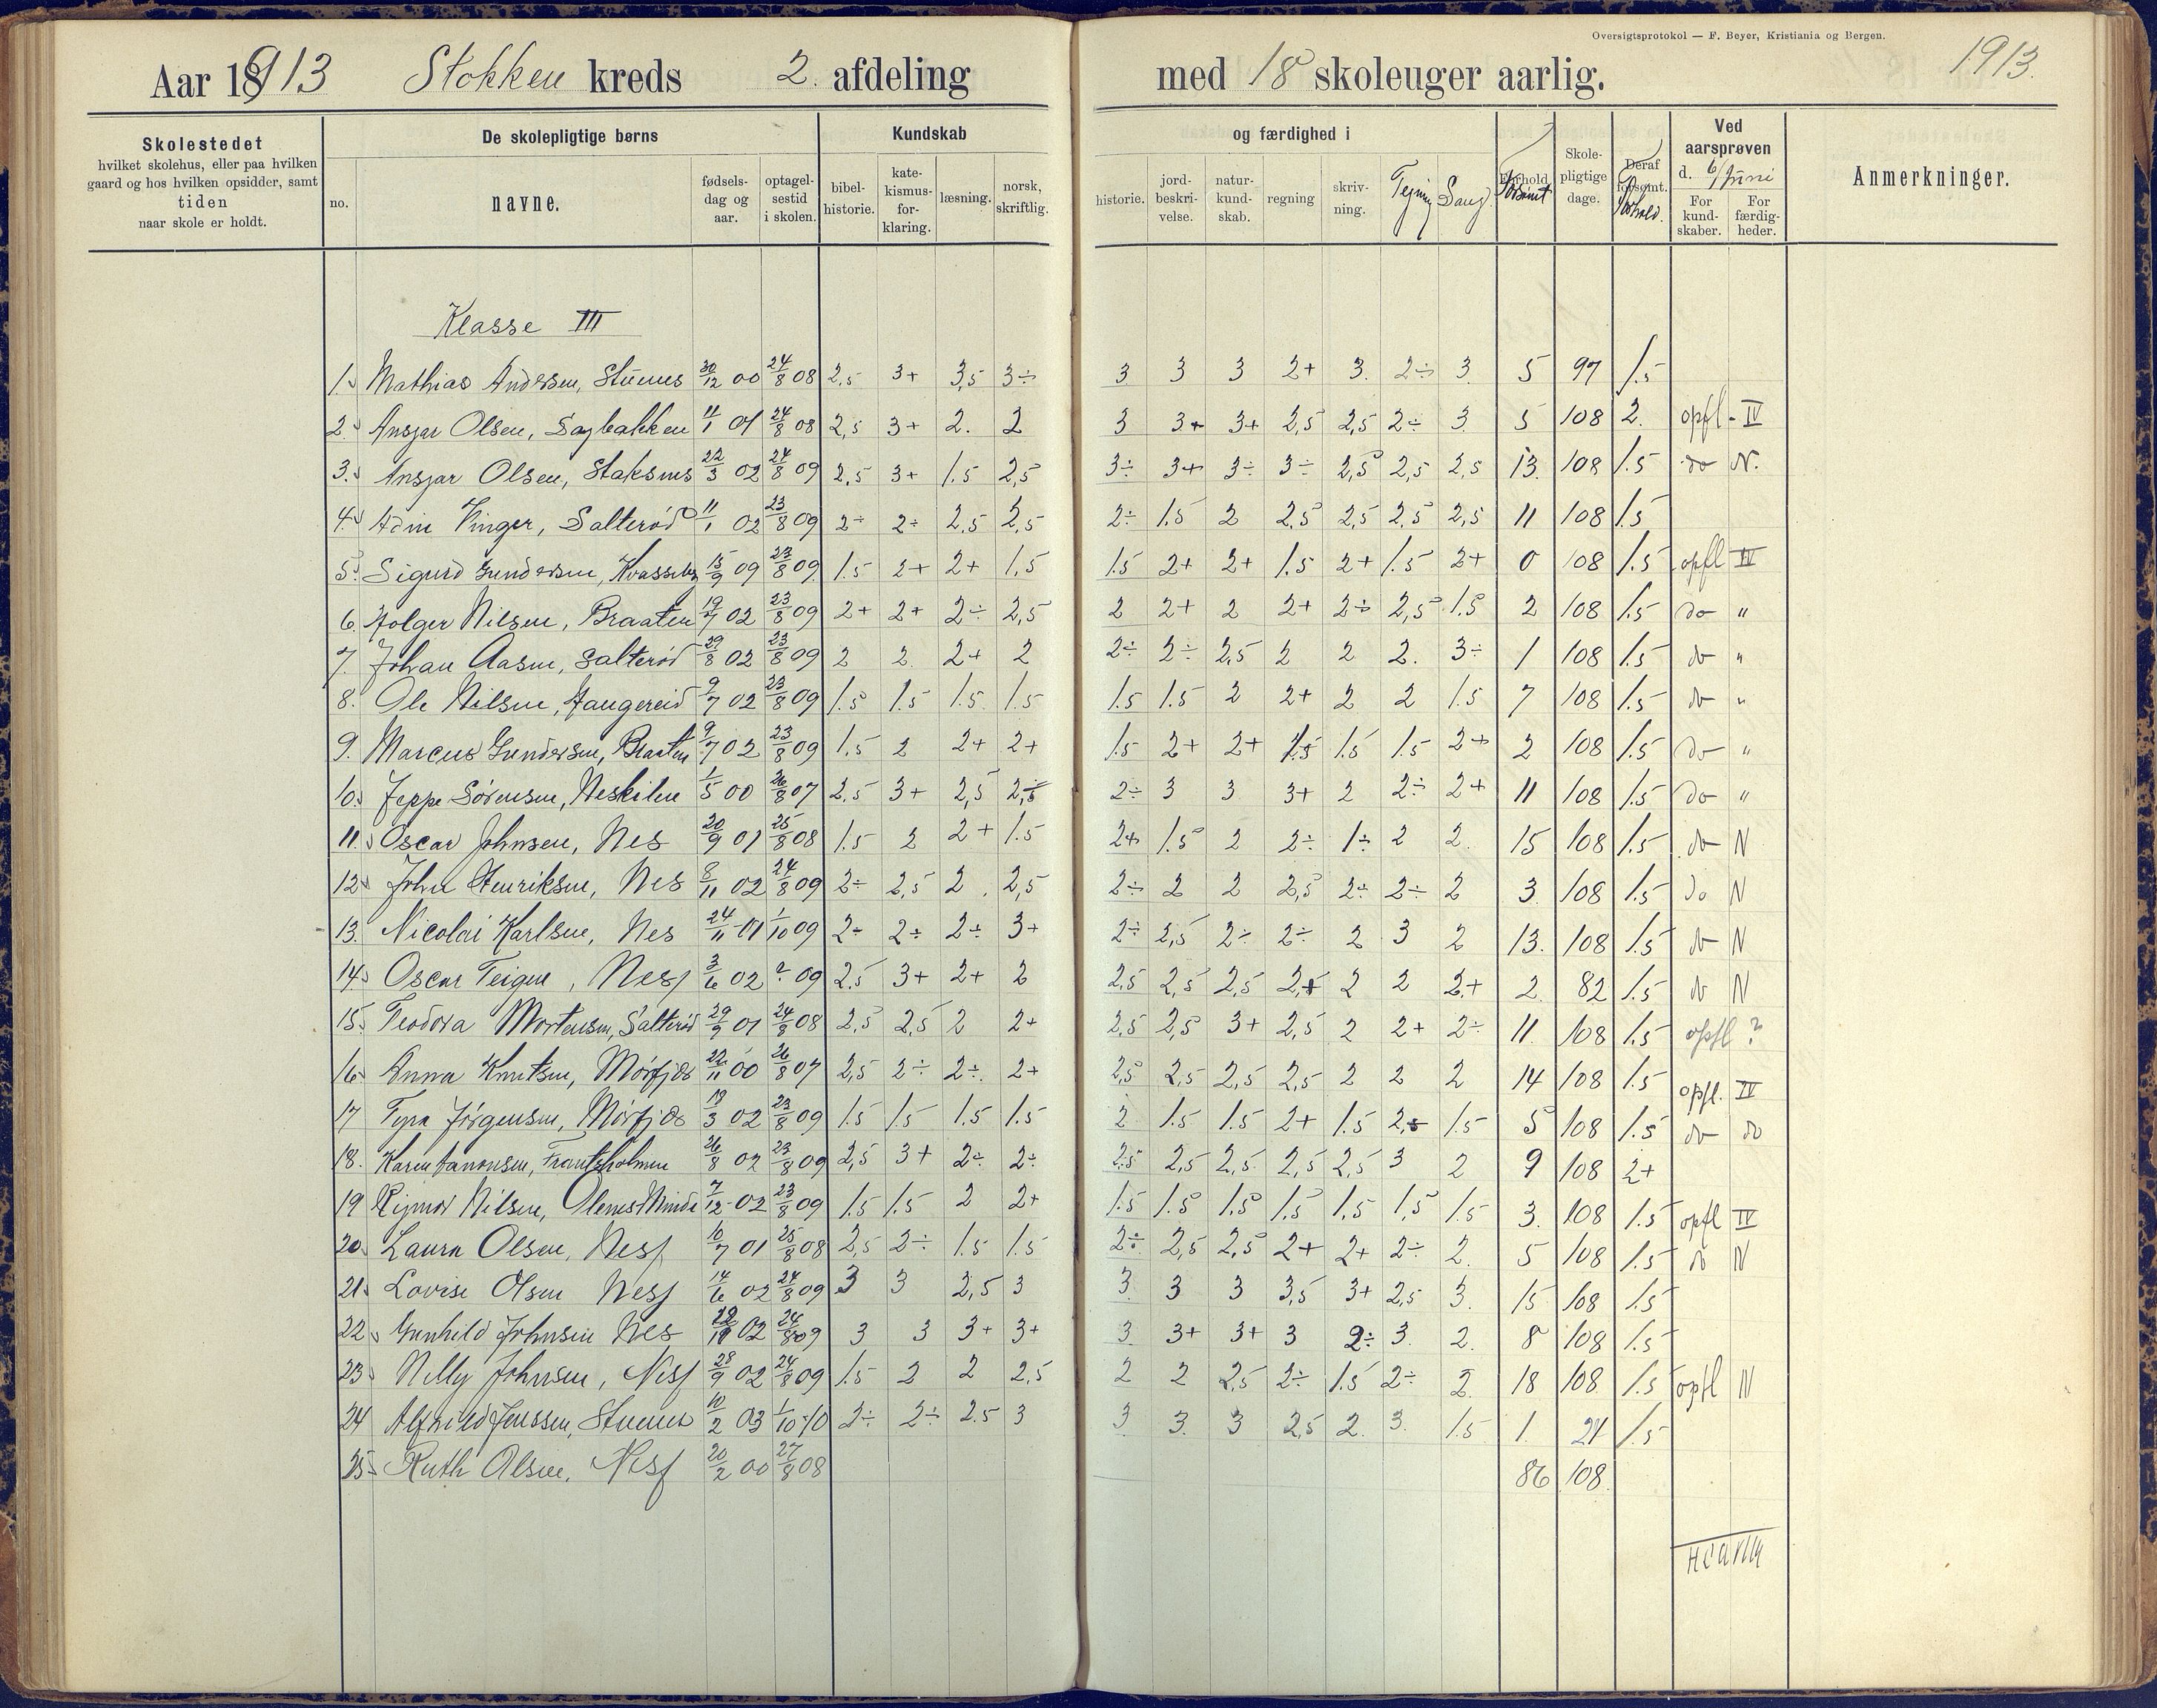 Oversigtsprotokol — F. Beyer, Kristiania og Bergen.
Aar 1913 Stokken kreds 2. afdeling med 18 skoleuger aarlig. 1913.
Skolestedet hvilket skolehus, eller paa hvilken gaard og hos hvilken opsidder, samt tiden naar skole er holdt.
De skolepligtige børns
no. navne. fødsels-dag og aar. optagel-sestid i skolen.
Kundskab og færdighed i
bibel-historie. kate-kismus-for-klaring. læsning. norsk, skriftlig. historie. jord-beskri-velse. natur-kund-skab. regning skriv-ning. Tegning Sang.
Forhold Forsømt Skole-pligtige dage. Deraf forsømt. Forhold.
Ved aarsprøven d. 6/Juni For kund-skaber. For færdig-heder.
Anmerkninger.
Klasse III
1. Mathias Andersen, Stuenes 30/12 00 24/8 08 2,5 3+ 3,5 3÷ 3 3 3 2+ 3. 2÷ 3. 5 97 1.5
2. Ansgar Olsen, Sagbakken 11/1 01 24/8 08 2,5 3+ 2. 2 3 3+ 3+ 2,5 2,5 2÷ 3. 5 108 2. opfl - IV
3. Ansgar Olsen, Staksnes 22/3 02 24/8 09 2.5 3+ 1.5 2,5 3÷ 3+ 3÷ 3÷ 2,5 2,5 2,5 13. 108 1.5 do N.
4. Vinger, Salterød 11/1 02 23/8 09 2÷ 2÷ 2.5 2,5 2÷ 1.5 2 2.5 2,5 2,5 2,5 11 108 1.5
5. Sigurd Gundersen, 15/9 09 23/8 09 1.5 2+ 2+ 1,5 1.5 2+ 2+ 1.5 2+ 1.5 2+ 0 108 1.5 opfl IV
6. Holger Nilsen, Braaten 19/7 02 23/8 09 2+ 2+ 2÷ 2,5 2 2+ 2 2+ 2÷ 2,5 1.5 2 108 1.5 do "
7. Johan Aasen, Salterød 29/8 02 23/8 09 2 2. 2+ 2 2÷ 2÷ 2,5 2 2 2. 3÷ 1 108 1.5 do "
8. Ole Nilsen, Haugereid 9/7 02 23/8 09 1.5 1.5 1.5 1.5 1.5 1.5 2 2+ 2 2 1.5 7 108 1.5 do "
9. Marcus Gundersen, Braaten 9/7 02 23/8 09 1.5 2 2+ 2+ 1.5 2+ 2+ 1.5 1.5 1.5 2+ 2 108 1.5 do "
10. Jeppe Sørensen, Neskilen 1/5 00 26/8 07 2.5 3+ 2,5 2,5 2÷ 3 3 3+ 2 2÷ 2+ 11 108 1.5 do "
11. Oscar Johnsen, Nes 20/9 01 25/8 08 1.5 2 2+ 1.5 2+ 1.5 2 2÷ 1÷ 2 2. 15 108 1.5 do N
12. John Henriksen, Nes 8/11 02 24/8 09 2÷ 2,5 2. 2,5 2÷ 2 2 2,5 2÷ 2÷ 2 3. 108 1.5 do N
13. Nicolai Karlsen, Nes 24/11 01 1/10 09 2÷ 2÷ 2÷ 3+ 2÷ 2,5 2÷ 2÷ 2 3 2 13. 108 1.5 do N
14. Oscar Teigen, Nesf 3/6 02 ? 09 2.5 3+ 2+ 2 2,5 2,5 2,5 2,+ 2 2 2+ 2. 82 1.5 do N
15. Teodora Mortensen, Salterød 29/9 01 24/8 08 2,5 2,5 2 2+ 2,5 2,5 3+ 2,5 2 2+ 2÷ 11. 108 1.5 opfl ?
16. Anna Knutsen, Mørfjær 22/11 00 26/8 07 2,5 2÷ 2÷. 2+ 2,5 2,5 2,5 2,5 2 2 2 14 108 1.5 opfl. IV
17 Tyra Jørgensen, Mørfjær 19/3 02 23/8 09 1.5 1.5 1.5 1.5 2 1.5 1.5 2+ 1.5 2,5 1.5 5 108 1.5 do do
18. Karen Aanonsen, Frantzholmen 26/8 02 23/8 09 2,5 3+ 2÷ 2÷ 2.5 2,5 2,5 2,5 2,5 3 2 9 108 2+
19 Rigmor Nilsen, 7/12 02 23/8 09 1.5 1.5 2 2+ 1.5 1.5 1,5 1,5 1,5 1,5 1.5 3. 108 1.5 opfl IV
20. Laura Olsen, Nesf 10/7 01 25/8 08 2,5 2÷ 1.5 1.5 2÷ 2,5 2,5 2+ 2+ 2÷ 2. 5 108 1.5 do N
21. Lovise Olsen Nesf 14/6 02 24/8 09 3 3 2,5 3 3. 3 3 3,5 3+ 2,5 3. 15 108 1.5
22. Gunhild Johnsen Nes 02 24/8 09 3 3 3+ 3+ 3. 3+ 3+ 3 2÷ 3. 2. 8 108 1.5
23. Nelly Johnsen, Nesf 28/9 02 24/8 09 1.5 2 2 2,5 2 2 2,5 2÷ 1.5 2÷ 2. 18 108. 1.5 opfl IV
24 Alfhild Jenssen, Stuenes 10/2 03 1/10 10 2÷ 2÷ 2.5 3 3 3. 3 2,5 2. 3. 1.5 1. 21 1.5
25. Ruth Olsen, Nesf 20/2 00 27/8 08 86 108.